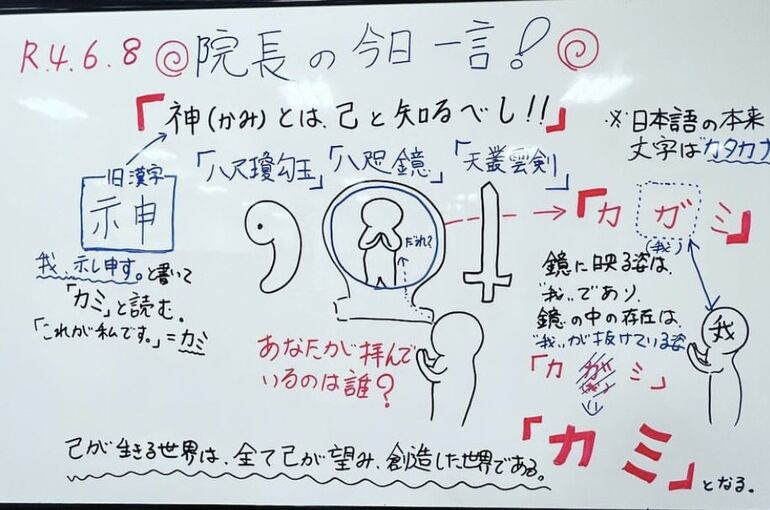 R.4.6.8 院長の今日一言!
「神(かみ)とは、己と知るべし!!」
※日本語の本来
文字はカタカナ
旧漢字
示申
我、示し申す。と書いて
「カミ」と読む。
「これが私です。」=カミ
「八尺瓊勾玉」「八咫鏡」「天叢雲剣」
だれ?
あなたが拝んで
いるのは誰?
「カガミ」
(我)
鏡に映る姿は、
"我"であり、
鏡の中の存在は、
"我"が抜けている姿
我
「カガミ」
(我)
「カミ」となる。
己が生きる世界は、全て己が望み、創造した世界である。